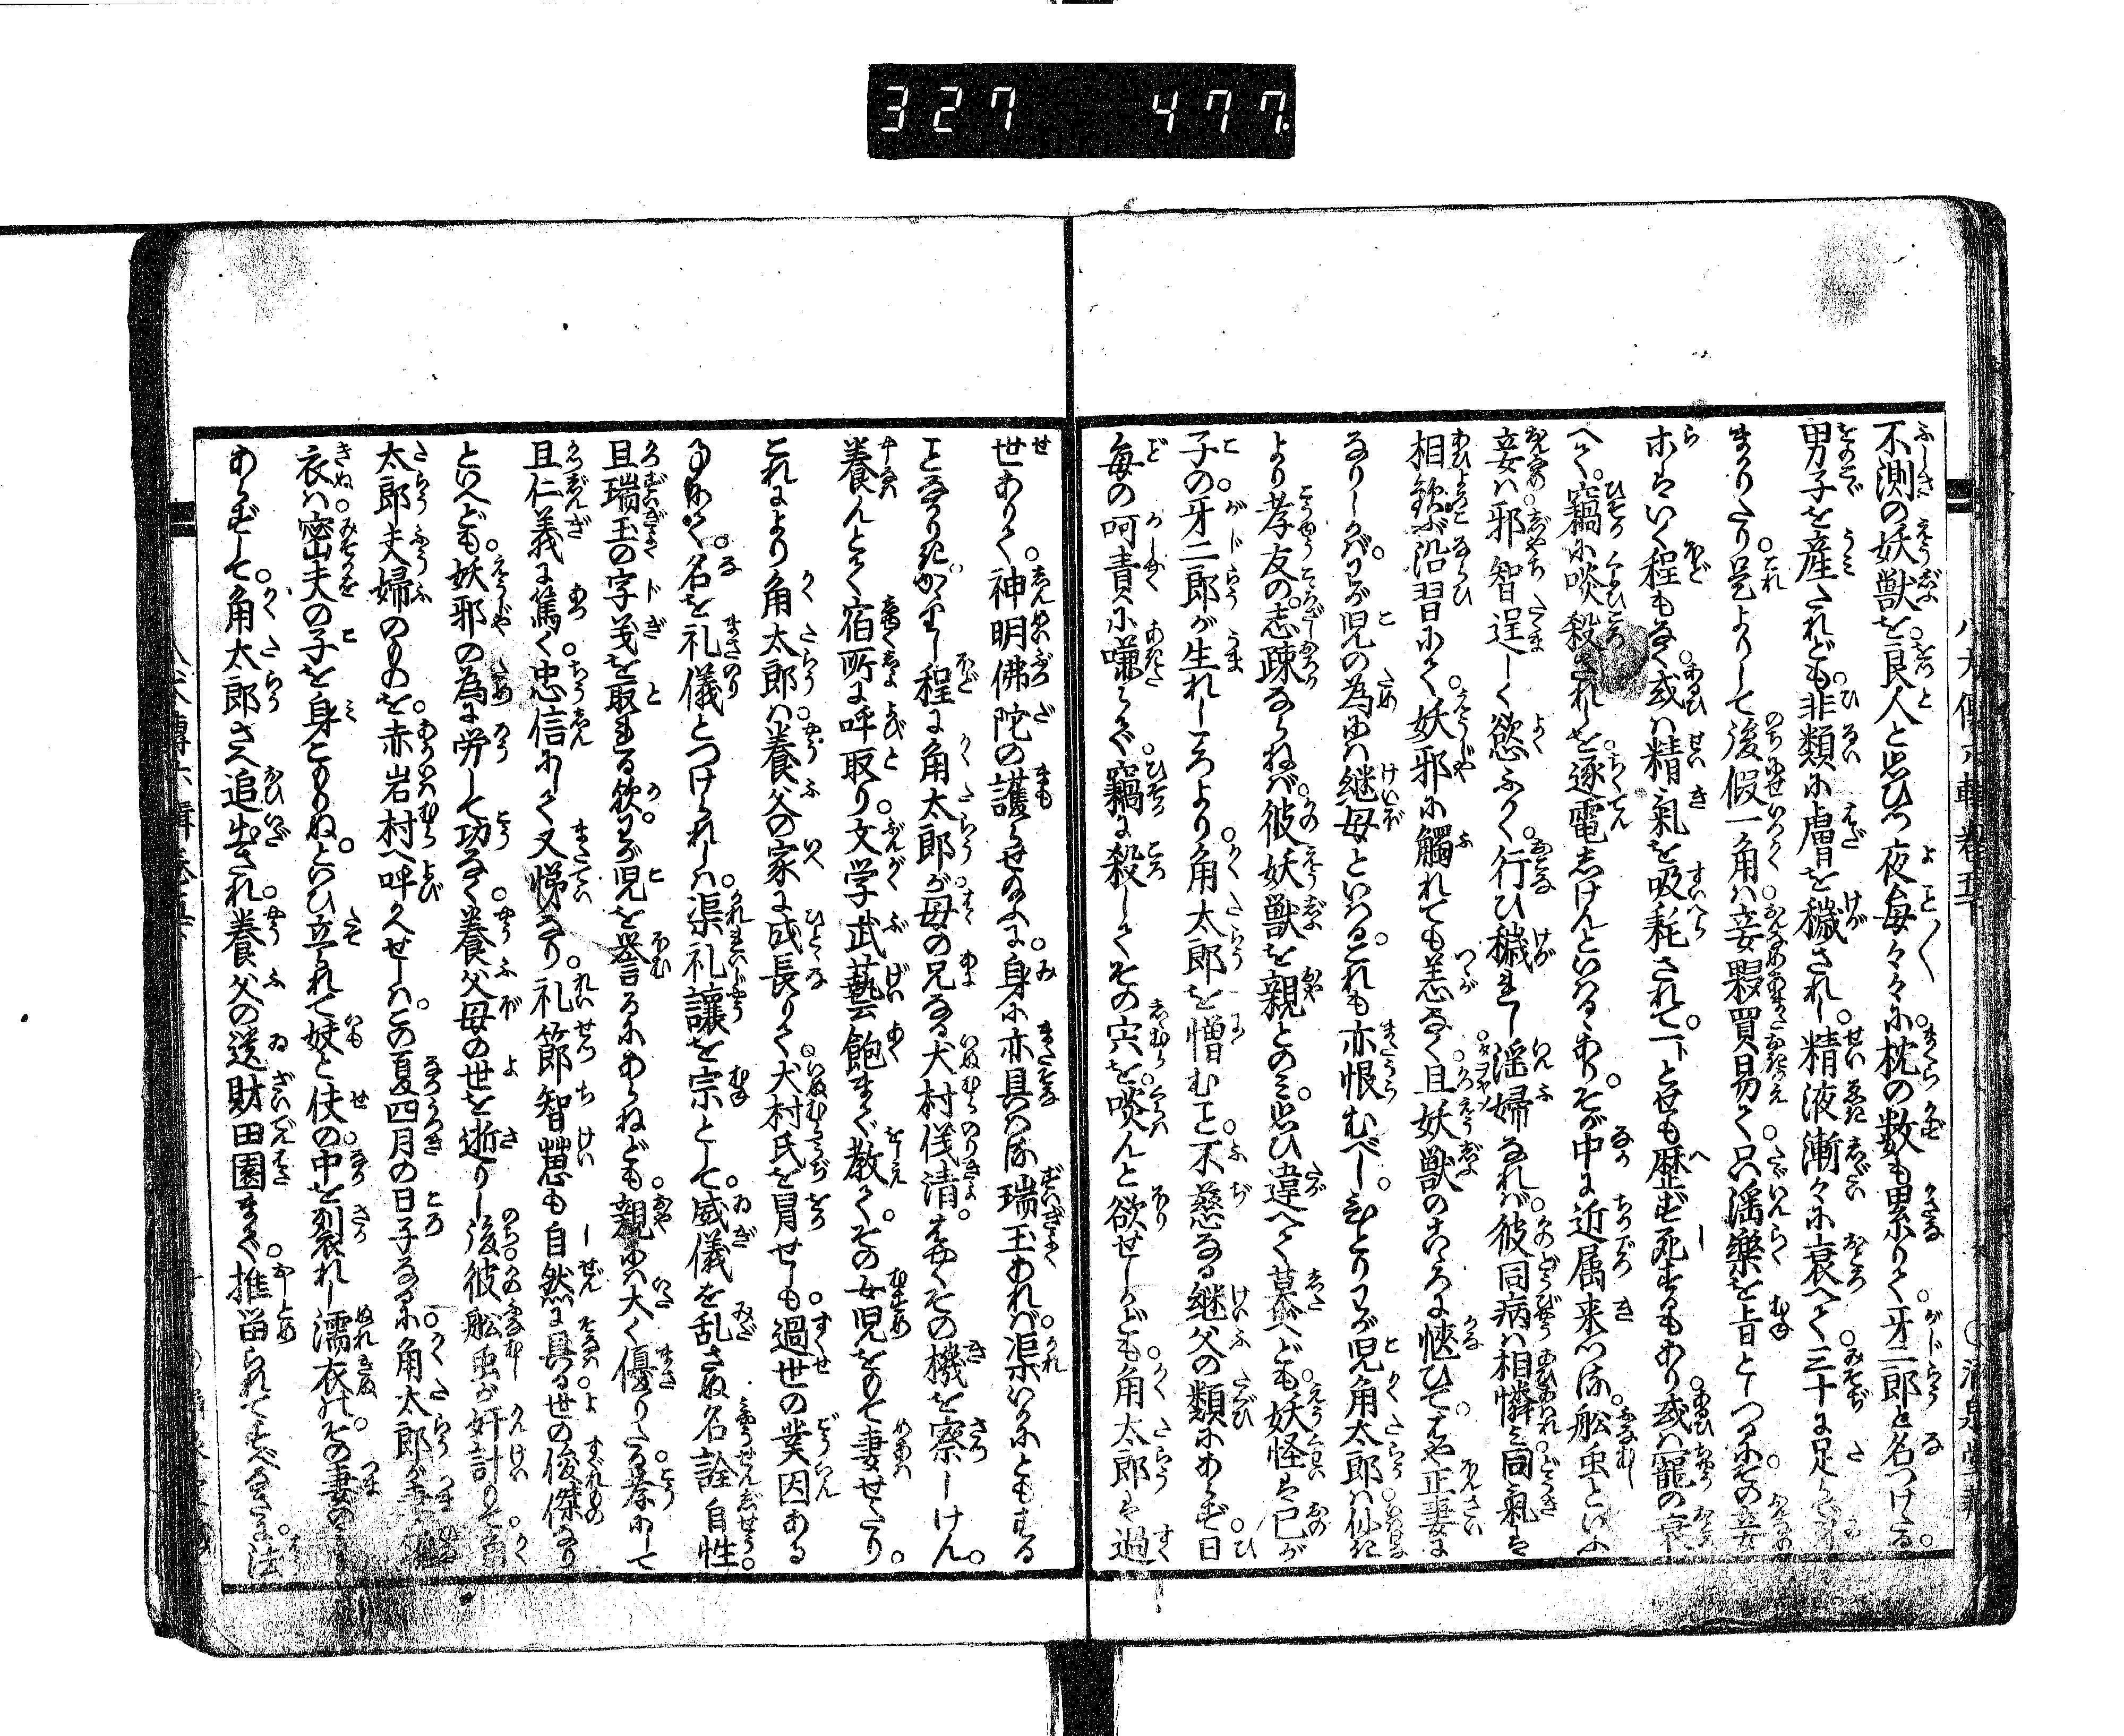 327 477
不測の妖獣を。良人と思ひつ夜毎々々に。枕の数も累りて。牙二郎と名つけたる。
男子を産たれども。非類に膚を穢され。精液漸々に衰へて。三十に足らで身
まかりたり。是よりして後。假一角は。妾夥買易て。只淫樂を旨としつるに。その妾
ホもいく程もなく。或は精氣を吸耗されて。一トとせも歴ず死するもあり。或は寵の衰
へて。竊に啖殺されしを。逐電しけんといはるゝあり。そが中に近属来つる。舩虫といふ
妾は。邪智逞しく慾ふかく。行ひ穢れし淫婦なれば。彼同病は相憐み。同氣は
相歓ぶ沿習にて。妖邪に觸れても恙なく。且妖獣のこゝろに愜ひて。はや正妻に
なりしかば。わが児の為には継母といはる。これも亦恨むべし。ひとりわが児角太郎は。
より孝友の。志疎ならねば。彼妖獣を親とのみ。思ひ違へて慕へども。妖怪は已が
子の。牙二郎が生れしころより。角太郎を憎むこと。不慈なる継父の類にあらず。日
毎の呵責に嗛らで。竊に殺してその宍を。啖んと欲せしかども。角太郎は過
世ありて。神明佛陀の護らせ給ふに。身に亦具はる瑞玉あれば。渠いかにともする
ことなかりき。かゝりし程に角太郎が。母の兄なる犬村儀清。はやくその機を察しけん。
養んとて宿所に呼取り。文学武藝飽まで教て。その女児をもて妻せたり。
これにより角太郎は。養父の家に成長りて。犬村氏を冒せしも。過世の業因ある
事にて。名を礼儀とつけられしは。渠礼讓を宗として。威儀を乱さぬ名詮自性。
且瑞玉の字義を取れる歟。わが児を誉るにあらねども。親には太く優りたる。孝にして
且仁義に篤く。忠信にして又悌なり。礼節智慧も自然に具る。世の俊傑なり
といへども。妖邪の為に労して功なく。養父母の世を逝りし後。彼舩虫が奸計もて。角
太郎夫婦のものを。赤岩村へ呼入せしは。この夏四月の日子なるに。角太郎が妻の雛
衣は。密夫の子を身こもりぬ。といひ立られて妹と伕の。中を裂れし濡衣は。その妻のみ
あらずして。角太郎さへ追出され。養父の送財田園まで。推畄られてすべもなさに。法
八犬傳六輯巻五下
八犬傳六輯巻五下